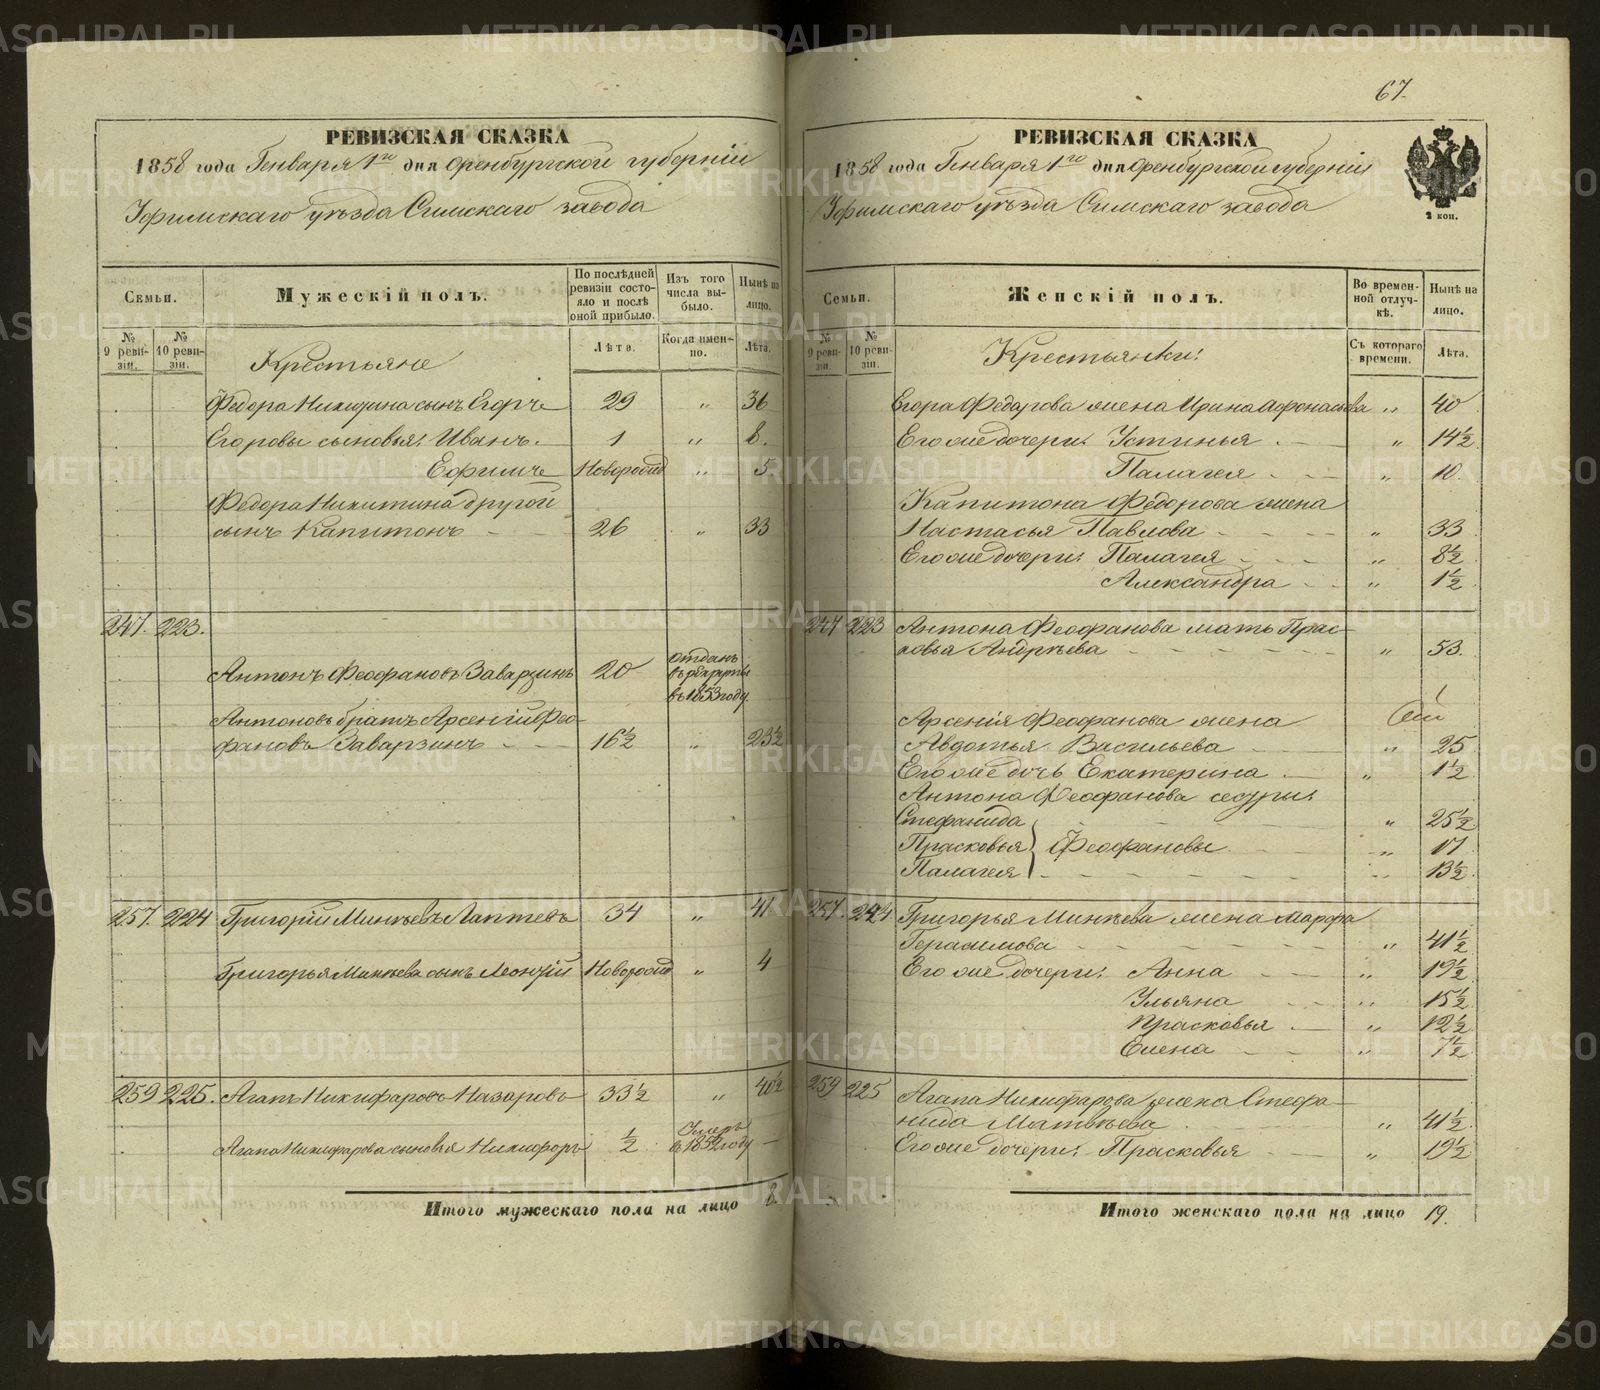 67.
РЕВИЗСКАЯ СКАЗКА
1858 года Генваря 1го дня Оренбургской губерніи
Уфимскаго уѣзда Симскаго завода
Семьи.
Мужескій полъ.
По послѣдней ревизіи состояло и послѣ оной прибыло.
Изъ того числа выбыло.
Нынѣ на лицо.
№ 9 ревизіи.
№ 10 ревизіи.
Крестьяне
Лѣта.
Когда именно.
Лѣта.
Федора Никитина сынъ Егоръ 29 „ 36
Егоровы сыновья: Иванъ. 1 „ 8.
Ефимъ Новорожд „ 5
Федора Никитина другой
сынъ Капитонъ 26 „ 33
247. 223.
Антонъ Феофановъ Заварзинъ 20 отданъ въ рекруты въ 1853 году.
Антоновъ братъ Арсеній Фео-
фановъ Заварзинъ 16½ „ 23½
257. 224 Григорій Минѣевъ Лаптевъ 34 „ 41
Григорья Минѣева сынъ Леонтій Новорожд „ 4
259 225. Агапъ Никифаровъ Назаровъ 33½ „ 40½
Агапа Никифарова сыновья Никифоръ ½ Умеръ въ 1852 году —
Итого мужескаго пола на лицо 8.
РЕВИЗСКАЯ СКАЗКА
1858 года Генваря 1го дня Оренбургской губерніи
Уфимскаго уѣзда Симскаго завода
2 коп.
Семьи.
Женскій полъ.
Во временной отлучкѣ.
Нынѣ на лицо.
№ 9 ревизіи.
№ 10 ревизіи.
Крестьянки:
Съ котораго времени.
Лѣта.
Егора Федарова жена Ирина Афонасьева „ 40
Его же дочери: Устинья „ 14½
Палагея „ 10.
Капитона Федорова жена
Настасья Павлова „ 33
Его же дочери: Палагея „ 8½
Александра „ 1½
247 223 Антона Феофанова мать Прас-
ковья Андрѣева „ 53.
Арсенія Феофанова жена
Авдотья Васильева „ 25
Его же дочь Екатерина „ 1½
Антона Феофанова сестры:
Стефанида „ 25½
Прасковья } Феофановы „ 17
Палагея „ 13½
257. 224 Григорья Минѣева жена Марфа
Герасимова „ 41½
Его же дочери: Анна „ 19½
Ульяна „ 15½
Прасковья „ 12½
Елена „ 7½
259 225 Агапа Никифарова жена Стефа-
нида Матвѣева „ 41½
Его же дочери: Прасковья „ 19½
Итого женскаго пола на лицо 19.
METRIKI.GASO-URAL.RU